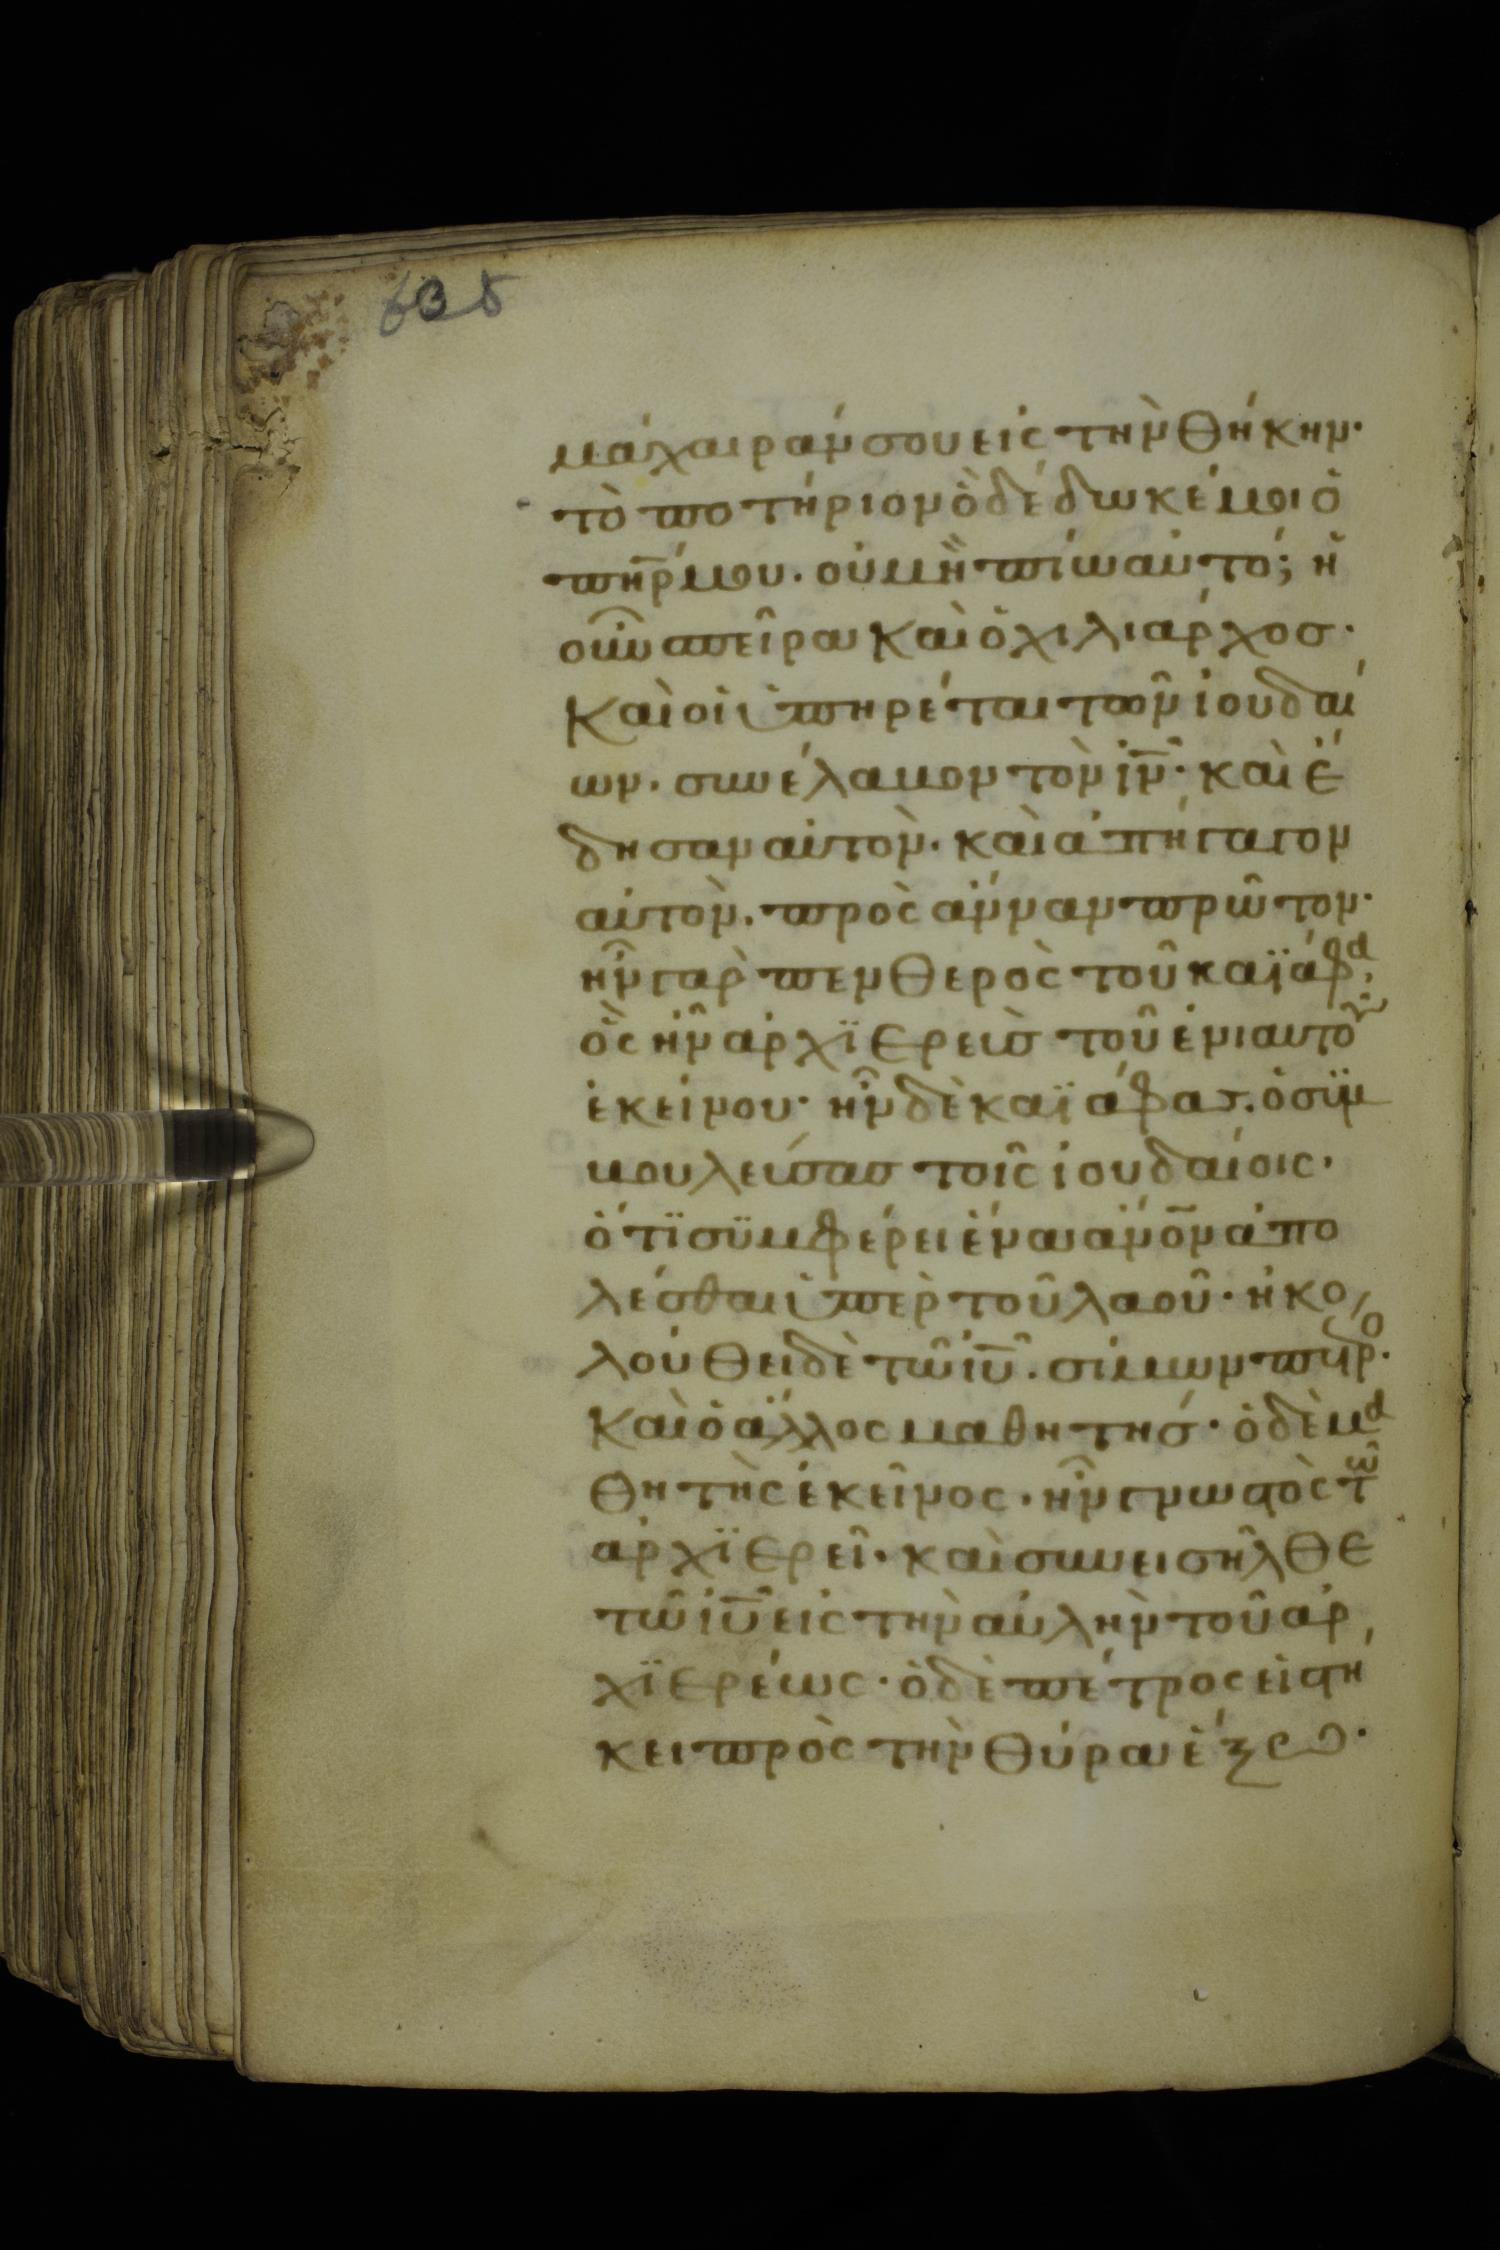 635
μάχαιράν σου εἰς τὴν θήκην·
τὸ ποτήριον ὃ δέδωκέ μοι ὁ
πη̅ρ μου· οὐ μὴ πίω αὐτό; ἡ
οὖν σπεῖρα καὶ ὁ χιλίαρχοσ·
καὶ οἱ ὑπηρέται τῶν ἰουδαί
ων· συνέλαβον τὸν ι̅ν̅· καὶ ἔ
δησαν αὐτὸν· καὶ ἀπήγαγον
αὐτὸν· πρὸς ἄνναν πρῶτον·
ἦν γὰρ πενθερὸς τοῦ καϊάφα·
ὃς ἦν ἀρχϊερεὺσ τοῦ ἐνιαυτοῦ
ἐκείνου· ἦν δὲ καϊάφας· ὁ σϋμ
βουλεύσασ τοῖς ἰουδαίοις·
ὅτϊ σϋμφέρει ἕνα α̅ν̅ο̅ν̅ ἀπο
λέσθαι ὑπὲρ τοῦ λαοῦ· ἠκο
λούθει δὲ τῶ ι̅υ̅· σίμων πέτρο·
καὶ ὁ ἄλλος μαθητήσ· ὁ δὲ μα
θητὴς ἐκεῖνος· ἦν γνωστὸς τῶ
ἀρχϊερεῖ· καὶ συνεισῆλθε
τῶ ι̅υ̅ εἰς τὴν αὐλὴν τοῦ ἀρ
χϊερέως· ὁ δὲ πέτρος εἱστή
κει πρὸς τὴν θύρα ἔξω·